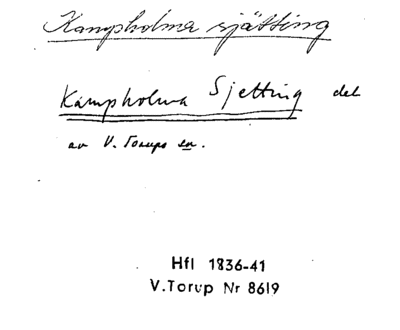 Kampholma sjätting
Kampholma Sjetting del
av V. Torups en.
Hfl 1836-41
V.Torup Nr 8619